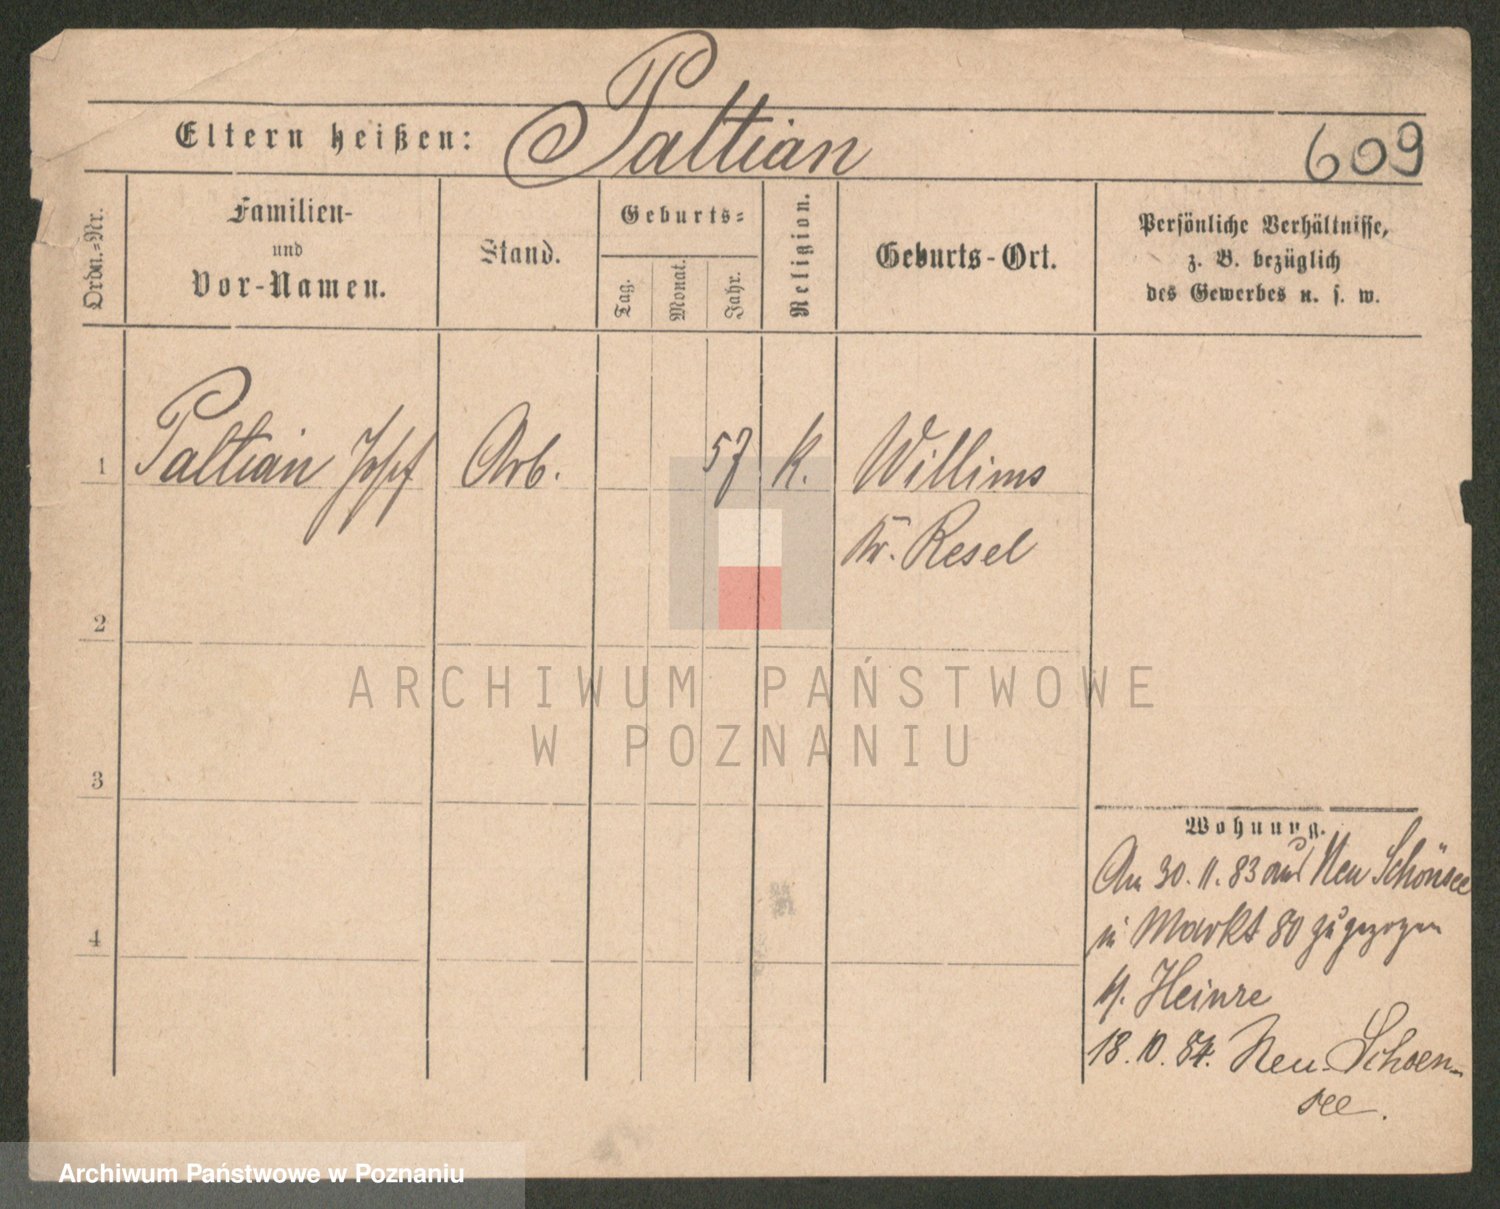 Eltern heißen: Paltian
609
Ordn.-Nr.
Familien-
und
Vor-Namen.
Stand.
Geburts-
Tag.
Monat.
Jahr.
Religion.
Geburts-Ort.
Persönliche Verhältnisse,
z. B. bezüglich
des Gewerbes u. s. w.
1 Paltian Josef Arb. 57 K. Willims
Kr. Resel
2
3
4
Wohnung.
Am 30. 11. 83 aus Neu Schönsee
in Markt 80 zugezogen
Heinze
18. 10. 84. Neu-Schoen-
see.
ARCHIWUM PAŃSTWOWE
W POZNANIU
Archiwum Państwowe w Poznaniu